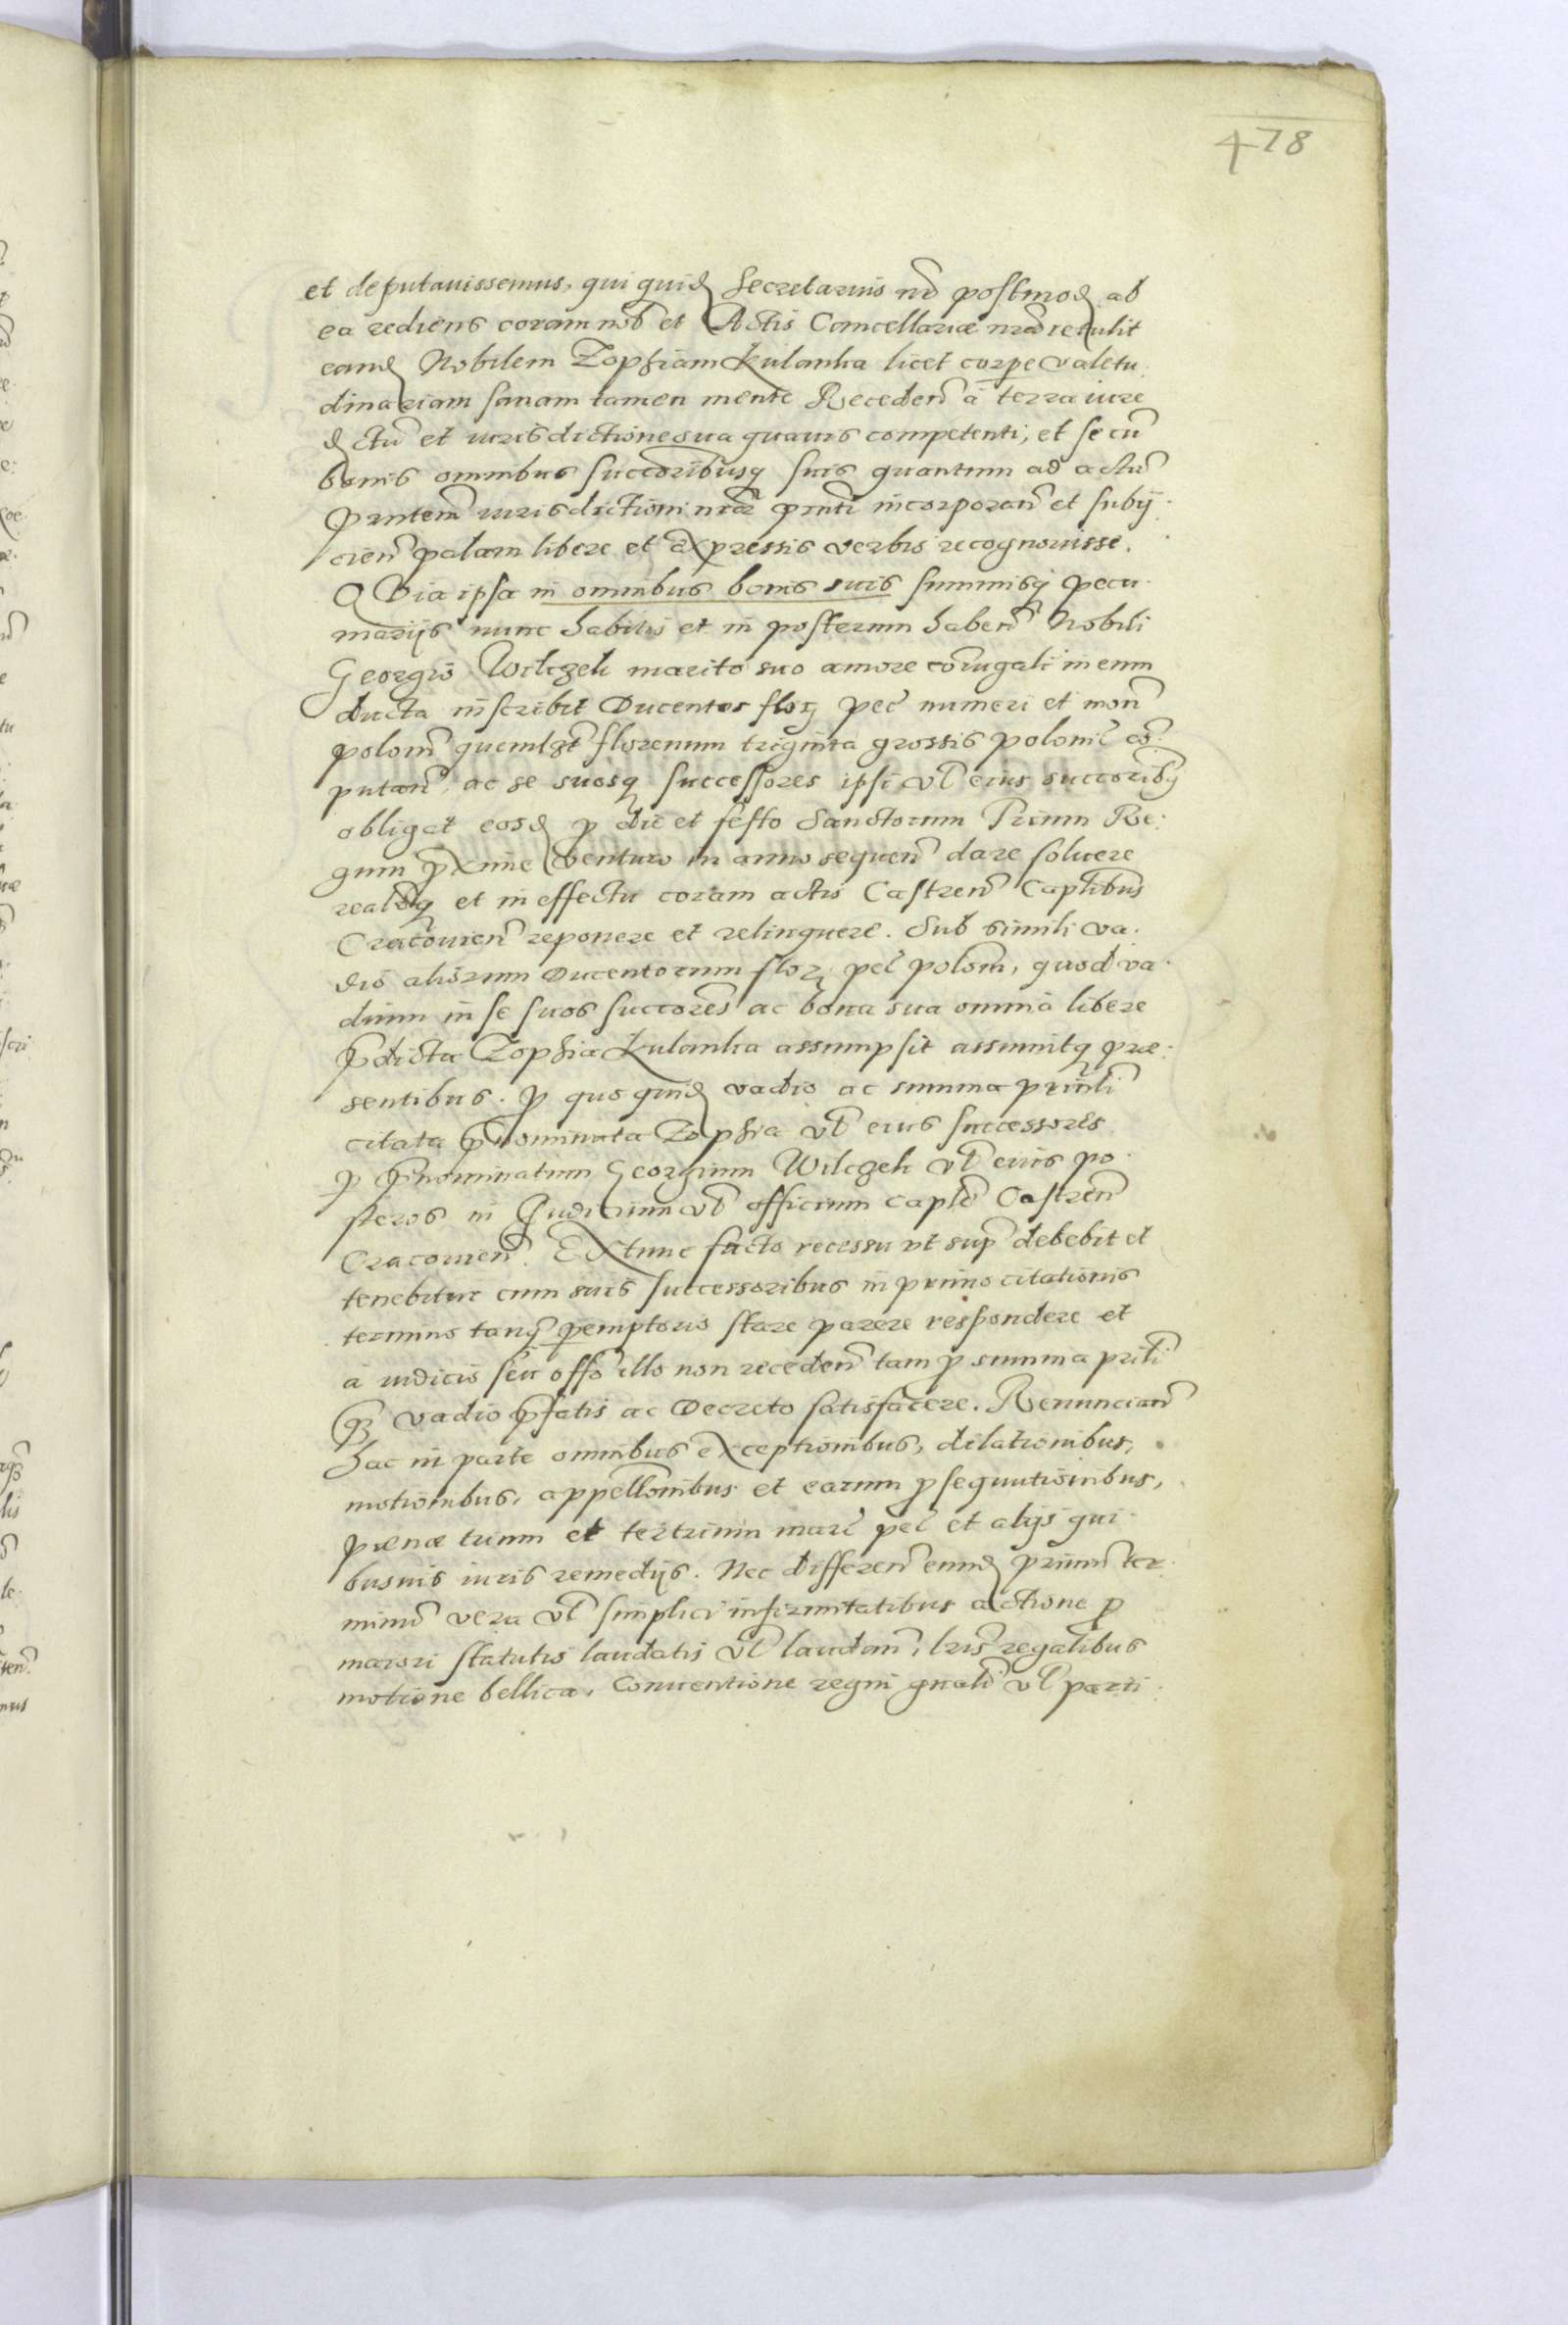 478
et deputauissemus, qui quid Secretarius nr̄ postmod ab
ea rediens coram nob et Actis Cancellariæ nrāe retulit
eand Nobilem Zophiam Kulanka licet corpe valetu
dinariam sanam tamen mente Receden̄ à terra iure
d ctu et iurisdictione sua quauis competenti, et se cū
bonis omnibus succoribusq suis quantum ad actū
pn̄tem iurisdictioni nrāe pn̄ti incorporan̄ et subij
cien̄ palam libere et expressis verbis recognouisse.
QVia ipsa in omnibus bonis suis summisq pecu
niarijs nunc habitis et in posterum haben̄ Nobili
Georgio Wilczek marito suo amore coniugali in eum
ducta inscribit Ducentos flor pec numeri et mon̄
polon̄ quemlībt florenum triginta grossis polonic cō
putan̄, ac se suosq successores ipsi vl eius succoribq
obligat eosd p die et festo Sanctorum Trium Re
gum pxime venturo in anno sequen̄ dare soluere
realrq et in effectu coram actis Castren̄ Caplibus
Cracouien̄ reponere et relinquere. Sub simili va
dio aliorum Ducentorum flor pec polon̄, quod va
dium in se suos succores ac bona sua omnia libere
pdicta Zophia Kulanka assumpsit assumitq præ
sentibus. p quo quid vadio ac summa prin̄li
citata pnominata Zophia vl eius successores
p pnominatum Georgium Wilczek vl eius po
steros in Judicium vl officium caple Castren̄
Cracouien̄. Extunc facto recessu vt sup debebit et
tenebitur cum suis successoribus in primo citationis
termino tanq pemptorio stare parere respondere et
a iudicio seu offo illo non receden̄ tam p summa prīli
qz vadio pfatis ac Decreto satisfacere. Renuncian̄
hac in parte omnibus exceptionibus, dilationibus,
motionibus, appellonibus et earum psequutionibus,
pœnæ trium et tertrium marc pec et alijs qui
busuis iuris remedijs. Nec differen̄ eund primū ter
minū vera vl simplici infirmitatibus actione p
maiori statutis laudatis vl laudan̄, lris regalibus
motione bellica, Conuentione regni gnali vl parti